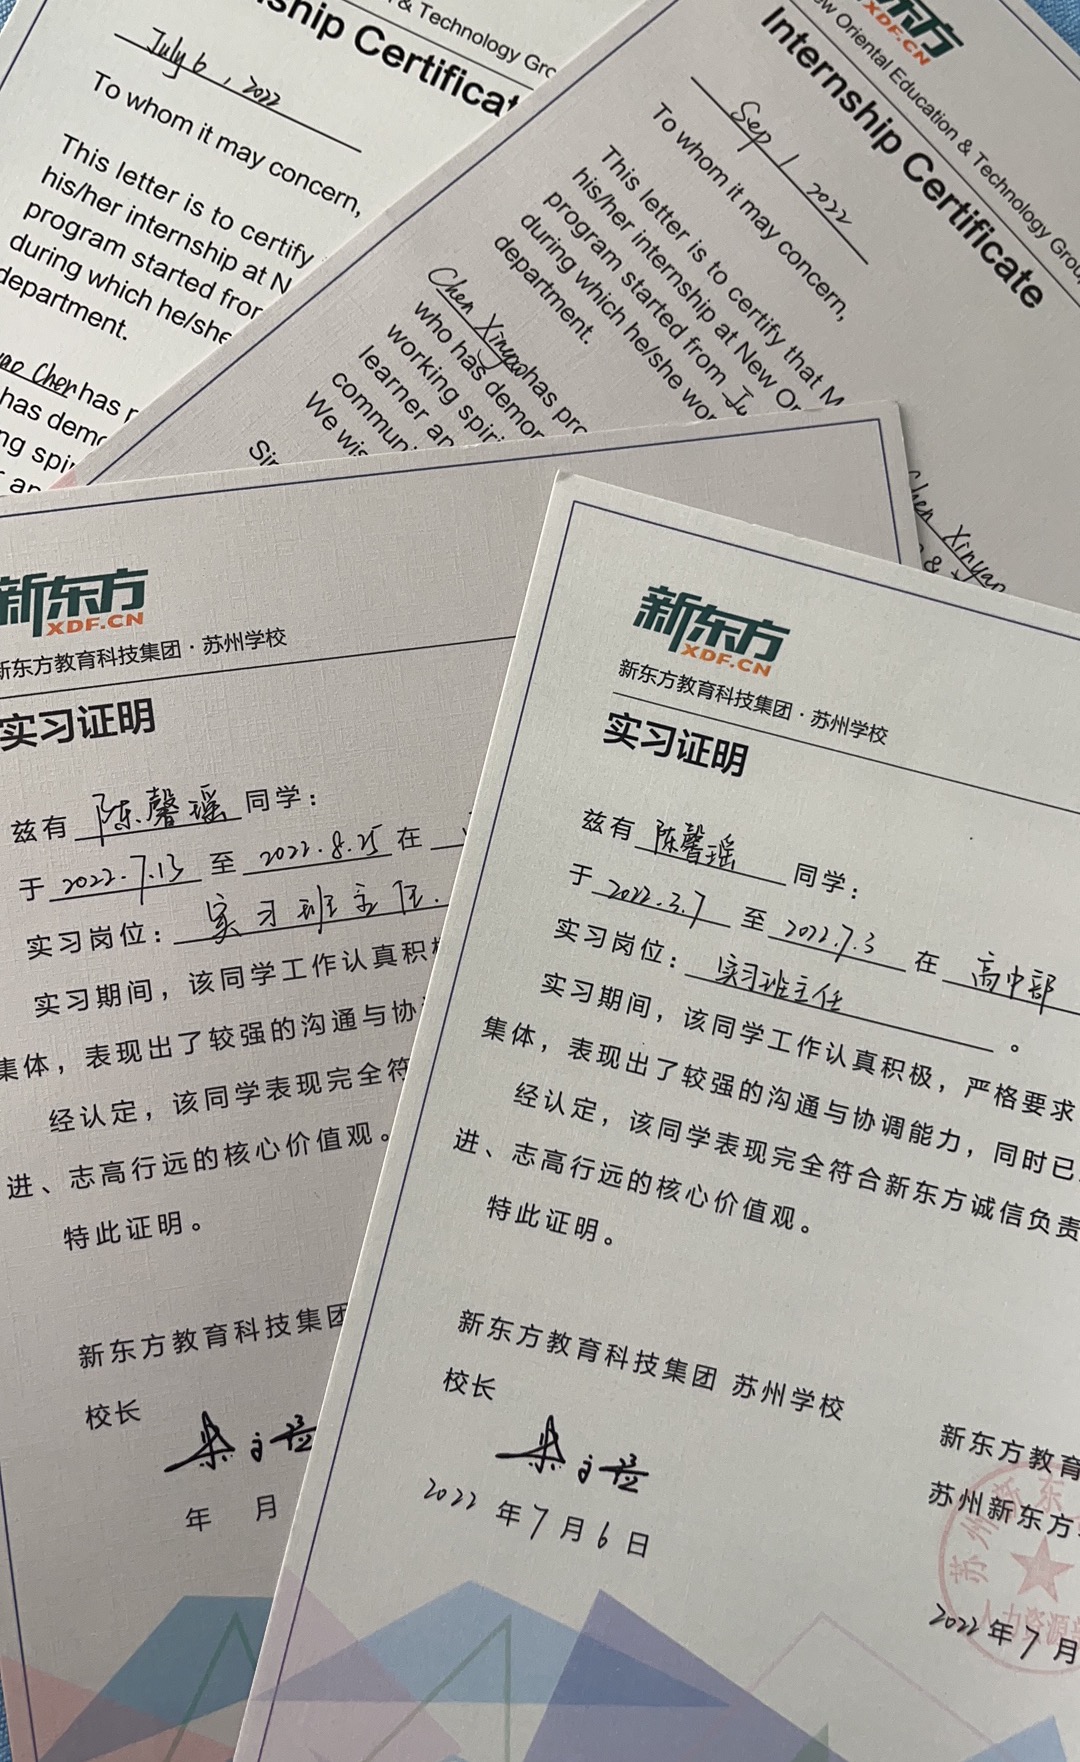 & Technology Gro
ship Certificat
July 6, 2022
To whom it may concern,
This letter is to certify
his/her internship at N
program started fror
during which he/she
department.
ao Chen has
has demo
ng spi
an
新东方
XDF.CN
New Oriental Education & Technology Group
Internship Certificate
Sep 1 2022
To whom it may concern,
This letter is to certify that M
his/her internship at New Or
program started from Ju
during which he/she wor
department.
Chen Xinyao has pro
who has demon
working spiri
learner an
commun
We wis
Sin
Chen Xinyao
&
新东方
XDF.CN
新东方教育科技集团·苏州学校
实习证明
兹有 陈馨瑶 同学：
于 2022.7.13 至 2022.8.25 在
实习岗位： 实习班主任.
实习期间，该同学工作认真积极
集体，表现出了较强的沟通与协
经认定，该同学表现完全符
进、志高行远的核心价值观。
特此证明。
新东方教育科技集团
校长
年 月
新东方
XDF.CN
新东方教育科技集团·苏州学校
实习证明
兹有 陈馨瑶 同学：
于 2022.3.7 至 2022.7.3 在 高中部
实习岗位： 实习班主任 。
实习期间，该同学工作认真积极，严格要求
集体，表现出了较强的沟通与协调能力，同时已
经认定，该同学表现完全符合新东方诚信负责
进、志高行远的核心价值观。
特此证明。
新东方教育科技集团 苏州学校
校长
2022 年 7 月 6 日
新东方教育
苏州新东方
苏州新东
人力资源部
2022 年 7 月